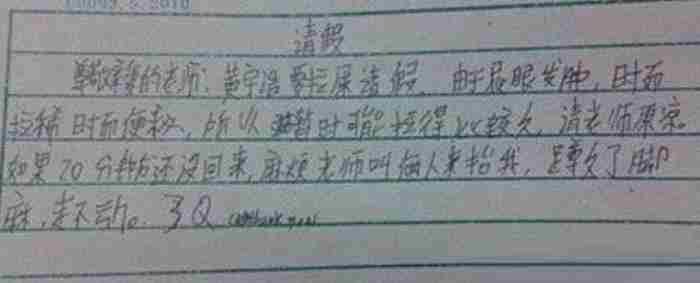 请假
尊敬亲爱的老师：黄宇浩要拉屎请假。由于屁眼发肿，时而
拉稀 时而便秘，所以 暂时可能拉得比较久，请老师原谅。
如果20分钟后还没回来，麻烦老师叫每人来抬我，蹲久了脚
麻，走不动。3Q